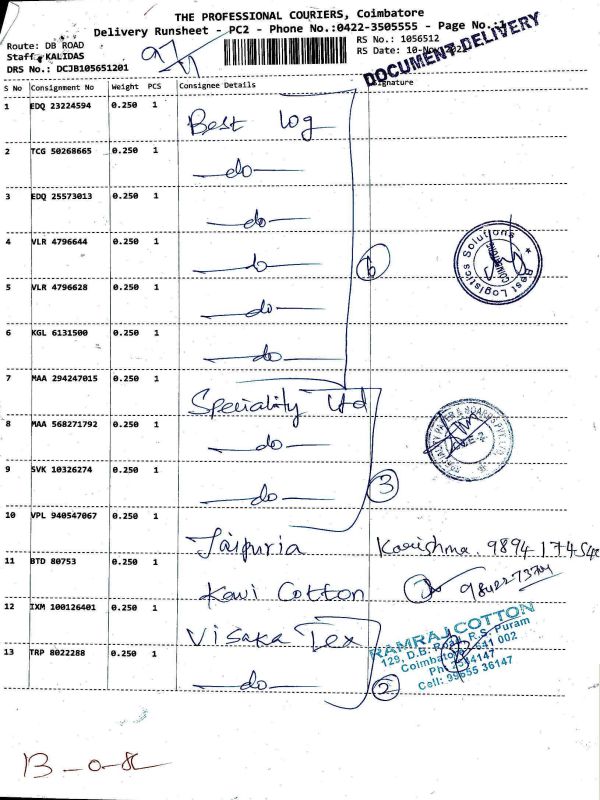 THE PROFESSIONAL COURIERS, Coimbatore
Delivery Runsheet - PC2 - Phone No.:0422-3505555 - Page No.:1
Route: DB ROAD
RS No.: 1056512
Staff: KALIDAS
RS Date: 10-Nov-
DRS No.: DCJB105651201
DOCUMENT DELIVERY
S No Consignment No Weight PCS Consignee Details Signature
1 EDQ 23224594 0.250 1 Best log
2 TCG 50268665 0.250 1 do
3 EDQ 25573013 0.250 1 do
4 VLR 4796644 0.250 1 do
5 VLR 4796628 0.250 1 do
6 KGL 6131500 0.250 1 do
6
Best Logistics Solutions
7 MAA 294247015 0.250 1 Speciality Ltd
8 MAA 568271792 0.250 1 do
9 SVK 10326274 0.250 1 do
3
10 VPL 940547067 0.250 1 Jaipuria Karishma. 9894 174
11 BTD 80753 0.250 1 Kawi Cotton
12 IXM 100126401 0.250 1 Visaka Tex
13 TRP 8022288 0.250 1 do
2
RAMRAJ COTTON
129, D.B. Road, R.S. Puram
Coimbatore 641 002
Cell: 36147
13 - 0 -